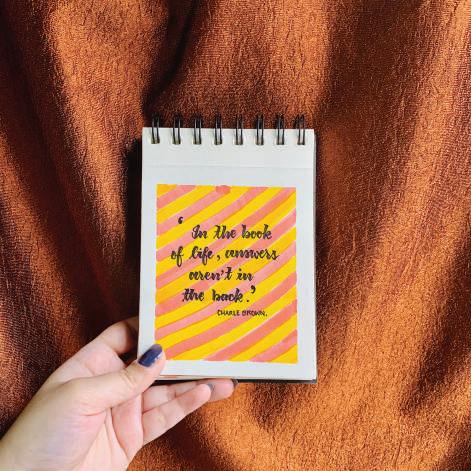 ‘In the book
of life, answers
aren't in
the back.’
CHARLE BROWN.